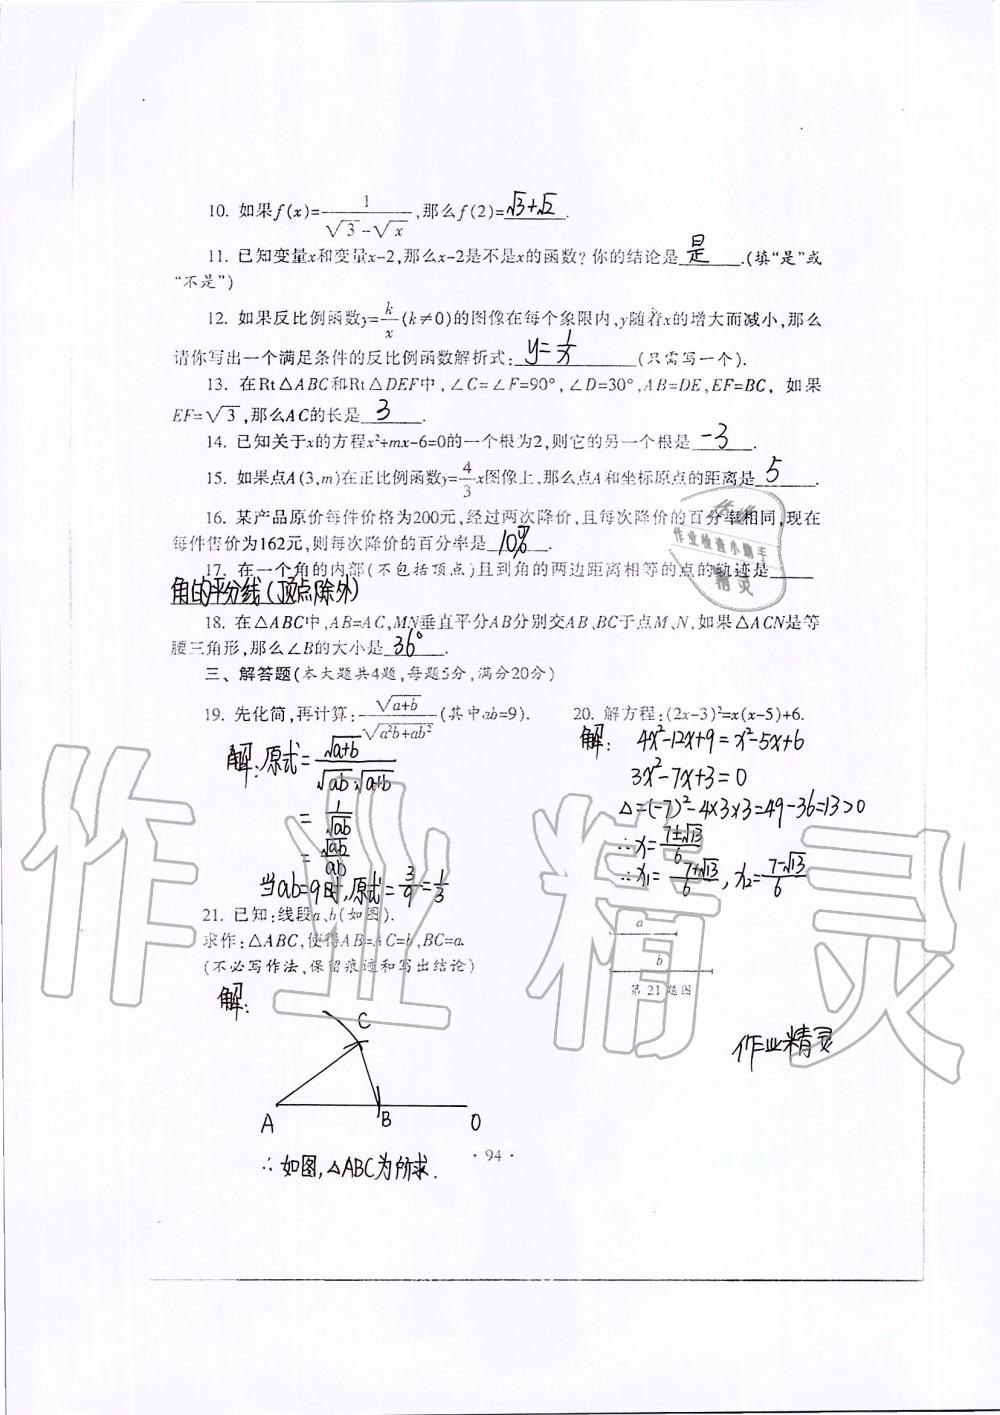 10. 如果f(x)=1/(√3-√x),那么f(2)=√3+√2.
11. 已知变量x和变量x-2,那么x-2是不是x的函数?你的结论是 是 .(填“是”或
“不是”)
12. 如果反比例函数y=k/x(k≠0)的图像在每个象限内,y随着x的增大而减小,那么
请你写出一个满足条件的反比例函数解析式: y=1/x (只需写一个).
13. 在Rt△ABC和Rt△DEF中,∠C=∠F=90°,∠D=30°,AB=DE,EF=BC, 如果
EF=√3,那么AC的长是 3 .
14. 已知关于x的方程x²+mx-6=0的一个根为2,则它的另一个根是 -3 .
15. 如果点A(3,m)在正比例函数y=4/3x图像上,那么点A和坐标原点的距离是 5 .
16. 某产品原价每件价格为200元,经过两次降价,且每次降价的百分率相同,现在
每件售价为162元,则每次降价的百分率是 10% .
作业检查小助手
精灵
17. 在一个角的内部(不包括顶点)且到角的两边距离相等的点的轨迹是
角的平分线(顶点除外)
18. 在△ABC中,AB=AC,MN垂直平分AB分别交AB、BC于点M、N,如果△ACN是等
腰三角形,那么∠B的大小是 36° .
三、解答题(本大题共4题,每题5分,满分20分)
19. 先化简,再计算:√(a+b)/√(a²b+ab²)(其中ab=9).
解:原式=√(a+b)/(√ab·√(a+b))
=1/√ab
=√ab/ab
当ab=9时,原式=3/9=1/3
20. 解方程:(2x-3)²=x(x-5)+6.
解: 4x²-12x+9=x²-5x+6
3x²-7x+3=0
△=(-7)²-4×3×3=49-36=13>0
∴x=(7±√13)/6
∴x₁=(7+√13)/6, x₂=(7-√13)/6
21. 已知:线段a、b(如图).
求作:△ABC,使得AB=AC=b,BC=a.
(不必写作法,保留痕迹和写出结论)
a
b
第21题图
解:
C
A B O
∴如图,△ABC为所求.
作业精灵
·94·
作业精灵